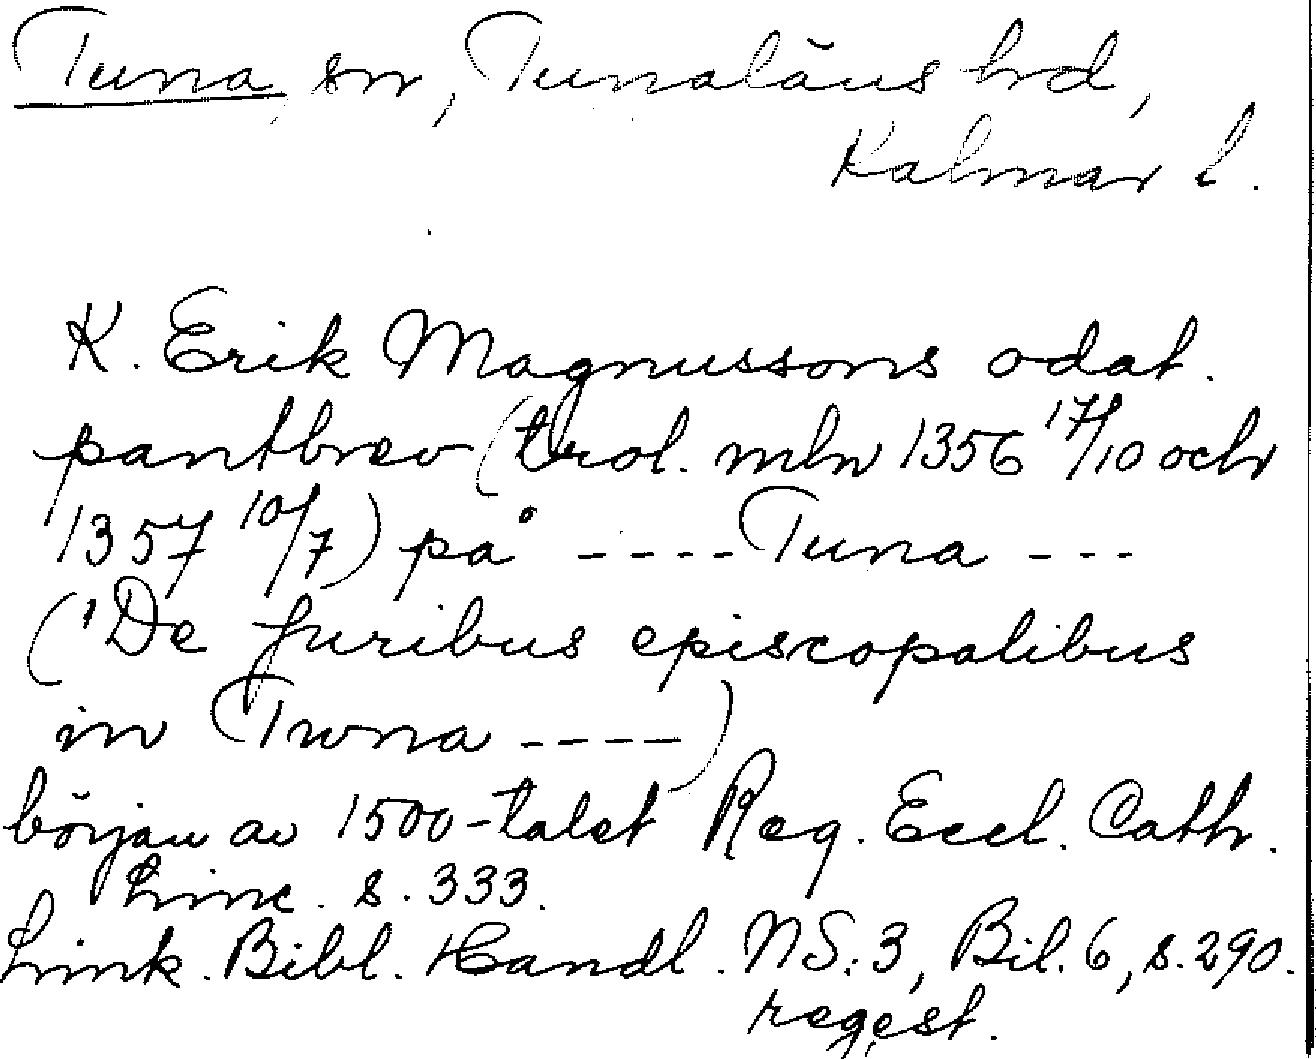 Tuna sn, Tunaläns hd,
Kalmar l.
K. Erik Magnussons odat.
pantbrev (trol. mln 1356 17/10 och
1357 10/7) på ---- Tuna ---
("De furibus episcopalibus
in Twna ----)
början av 1500-talet Reg. Eccl. Cath.
Linc. s. 333.
Link. Bibl. Handl. NS:3, Bil. 6, s. 290.
regest.